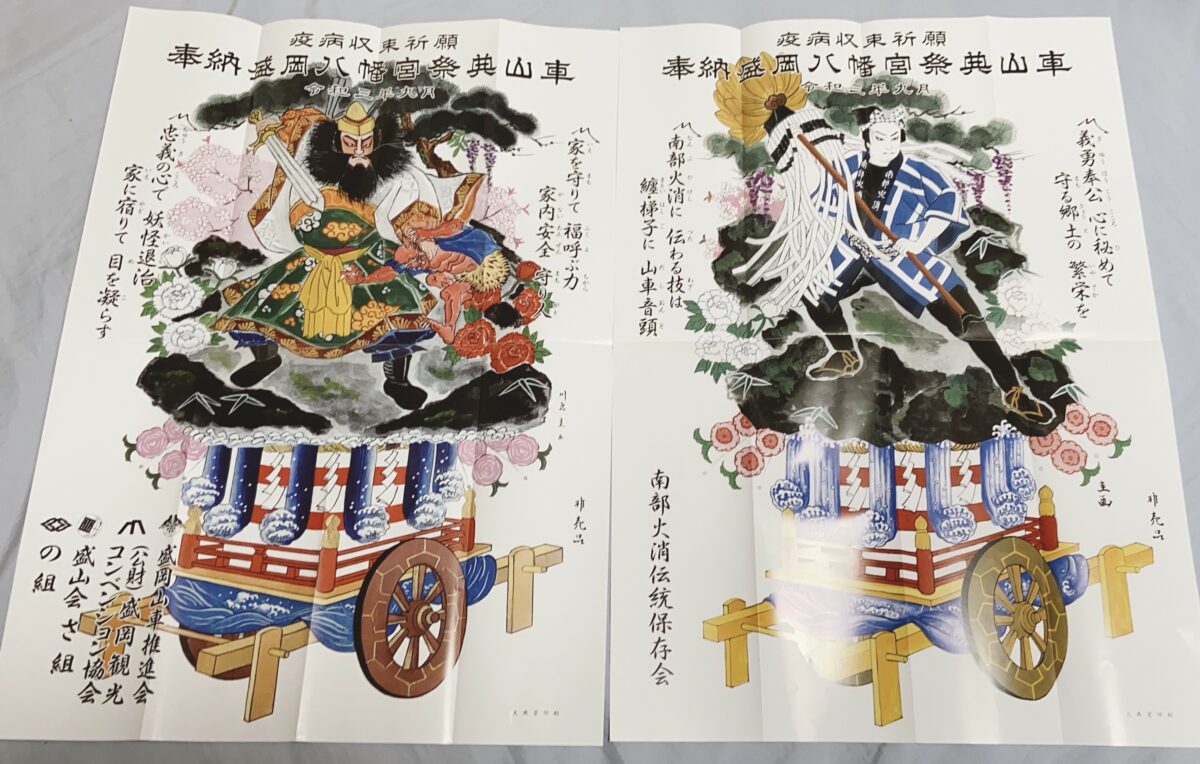 疫病収束祈願
奉納盛岡八幡宮祭典山車
令和三年九月
家を守りて 福呼ぶ力
家内安全 守
忠義の心で 妖怪退治
家に宿りて 目を凝らす
非売品
盛岡山車推進会
(公財)盛岡観光
コンベンション協会
盛山会さ組
の組
大典堂印刷
疫病収束祈願
奉納盛岡八幡宮祭典山車
令和三年九月
義勇奉公 心に秘めて
守る郷土の 繁栄を
南部火消に 伝わる技は
纏梯子に 山車音頭
南部火消
圭画
非売品
南部火消伝統保存会
大典堂印刷